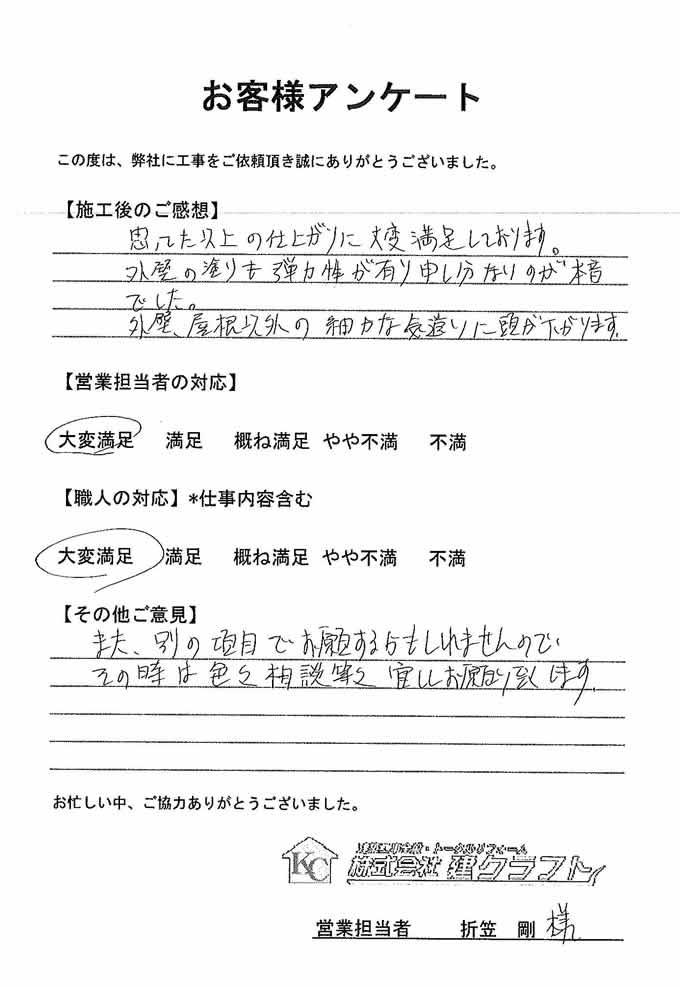 お客様アンケート
この度は、弊社に工事をご依頼頂き誠にありがとうございました。
【施工後のご感想】
思ってた以上の仕上がりに大変満足しております。
外壁の塗りも弾力性が有り申し分ないのが本音
でした。
外壁、屋根以外の細力な気遣いに頭が下がります。
【営業担当者の対応】
大変満足 満足 概ね満足 やや不満 不満
【職人の対応】*仕事内容含む
大変満足 満足 概ね満足 やや不満 不満
【その他ご意見】
また、別の項目でお願するかもしれませんので
その時は色々相談等々宜しくお願い致します。
お忙しい中、ご協力ありがとうございました。
KC
建築工事全般・トータルリフォーム
株式会社 建クラフト
営業担当者 折笠 剛 様